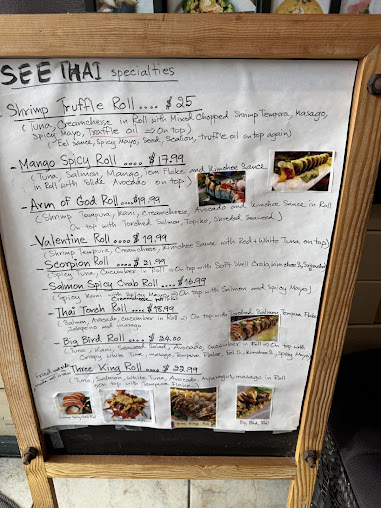 SEE THAI specialties
Shrimp Truffle Roll .... $25
(Tuna, Creamchesse in Roll with Mixed Chopped Shrimp Tempura, Masago,
Spicy Mayo, Truffle oil ⇒ On top)
(Eel Sauce, Spicy Mayo, Seed, Scallion, truffle oil on top again)
- Mango Spicy Roll .... $17.99
(Tuna, Salmon, Mango, Tem Flake and Kimchee Sauce
in Roll with Slide Avocado on top)
- Arm of God Roll ... $19.99
(Shrimp Tempura, Kani, Creamcheese, Avocado and Kimchee Sauce in Roll
On top with Torched Salmon, Tobiko, Shreded Seaweed)
- Valentine Roll .... $19.99
(Shrimp Tempura, Creamcheese, Kimchee Sauce with Red & White Tuna on top)
Scorpion Roll .... $21.99
(Spicy Tuna, Cucumber in Roll ⇒ On top with Soft Shell Crab,
- Salmon Spicy Crab Roll .... $16.99
(Spicy Kani with Spicy Mayo ⇒ On top with Salmon and Spicy Mayo)
- Thai Torch Roll .... $18.99
(Salmon, Avocado, cucumber in Roll ⇒ On top with Torched Salmon, Tempura Flake,
Jalapeno and masago
- Big Bird Roll .... $24.00
(Tuna, Kani, Seaweed Salad, Avocado, Cucumber in Roll ⇒ On top with
Crispy White Tuna, masago, Tempura Flake, Eel S., Kimchee S, Spicy Mayo)
- Three King Roll .... $22.99
(Tuna, Salmon, White Tuna, Avocado, Asparagus, masago in Roll
on top with Tempura Flake)
Big Bird Roll